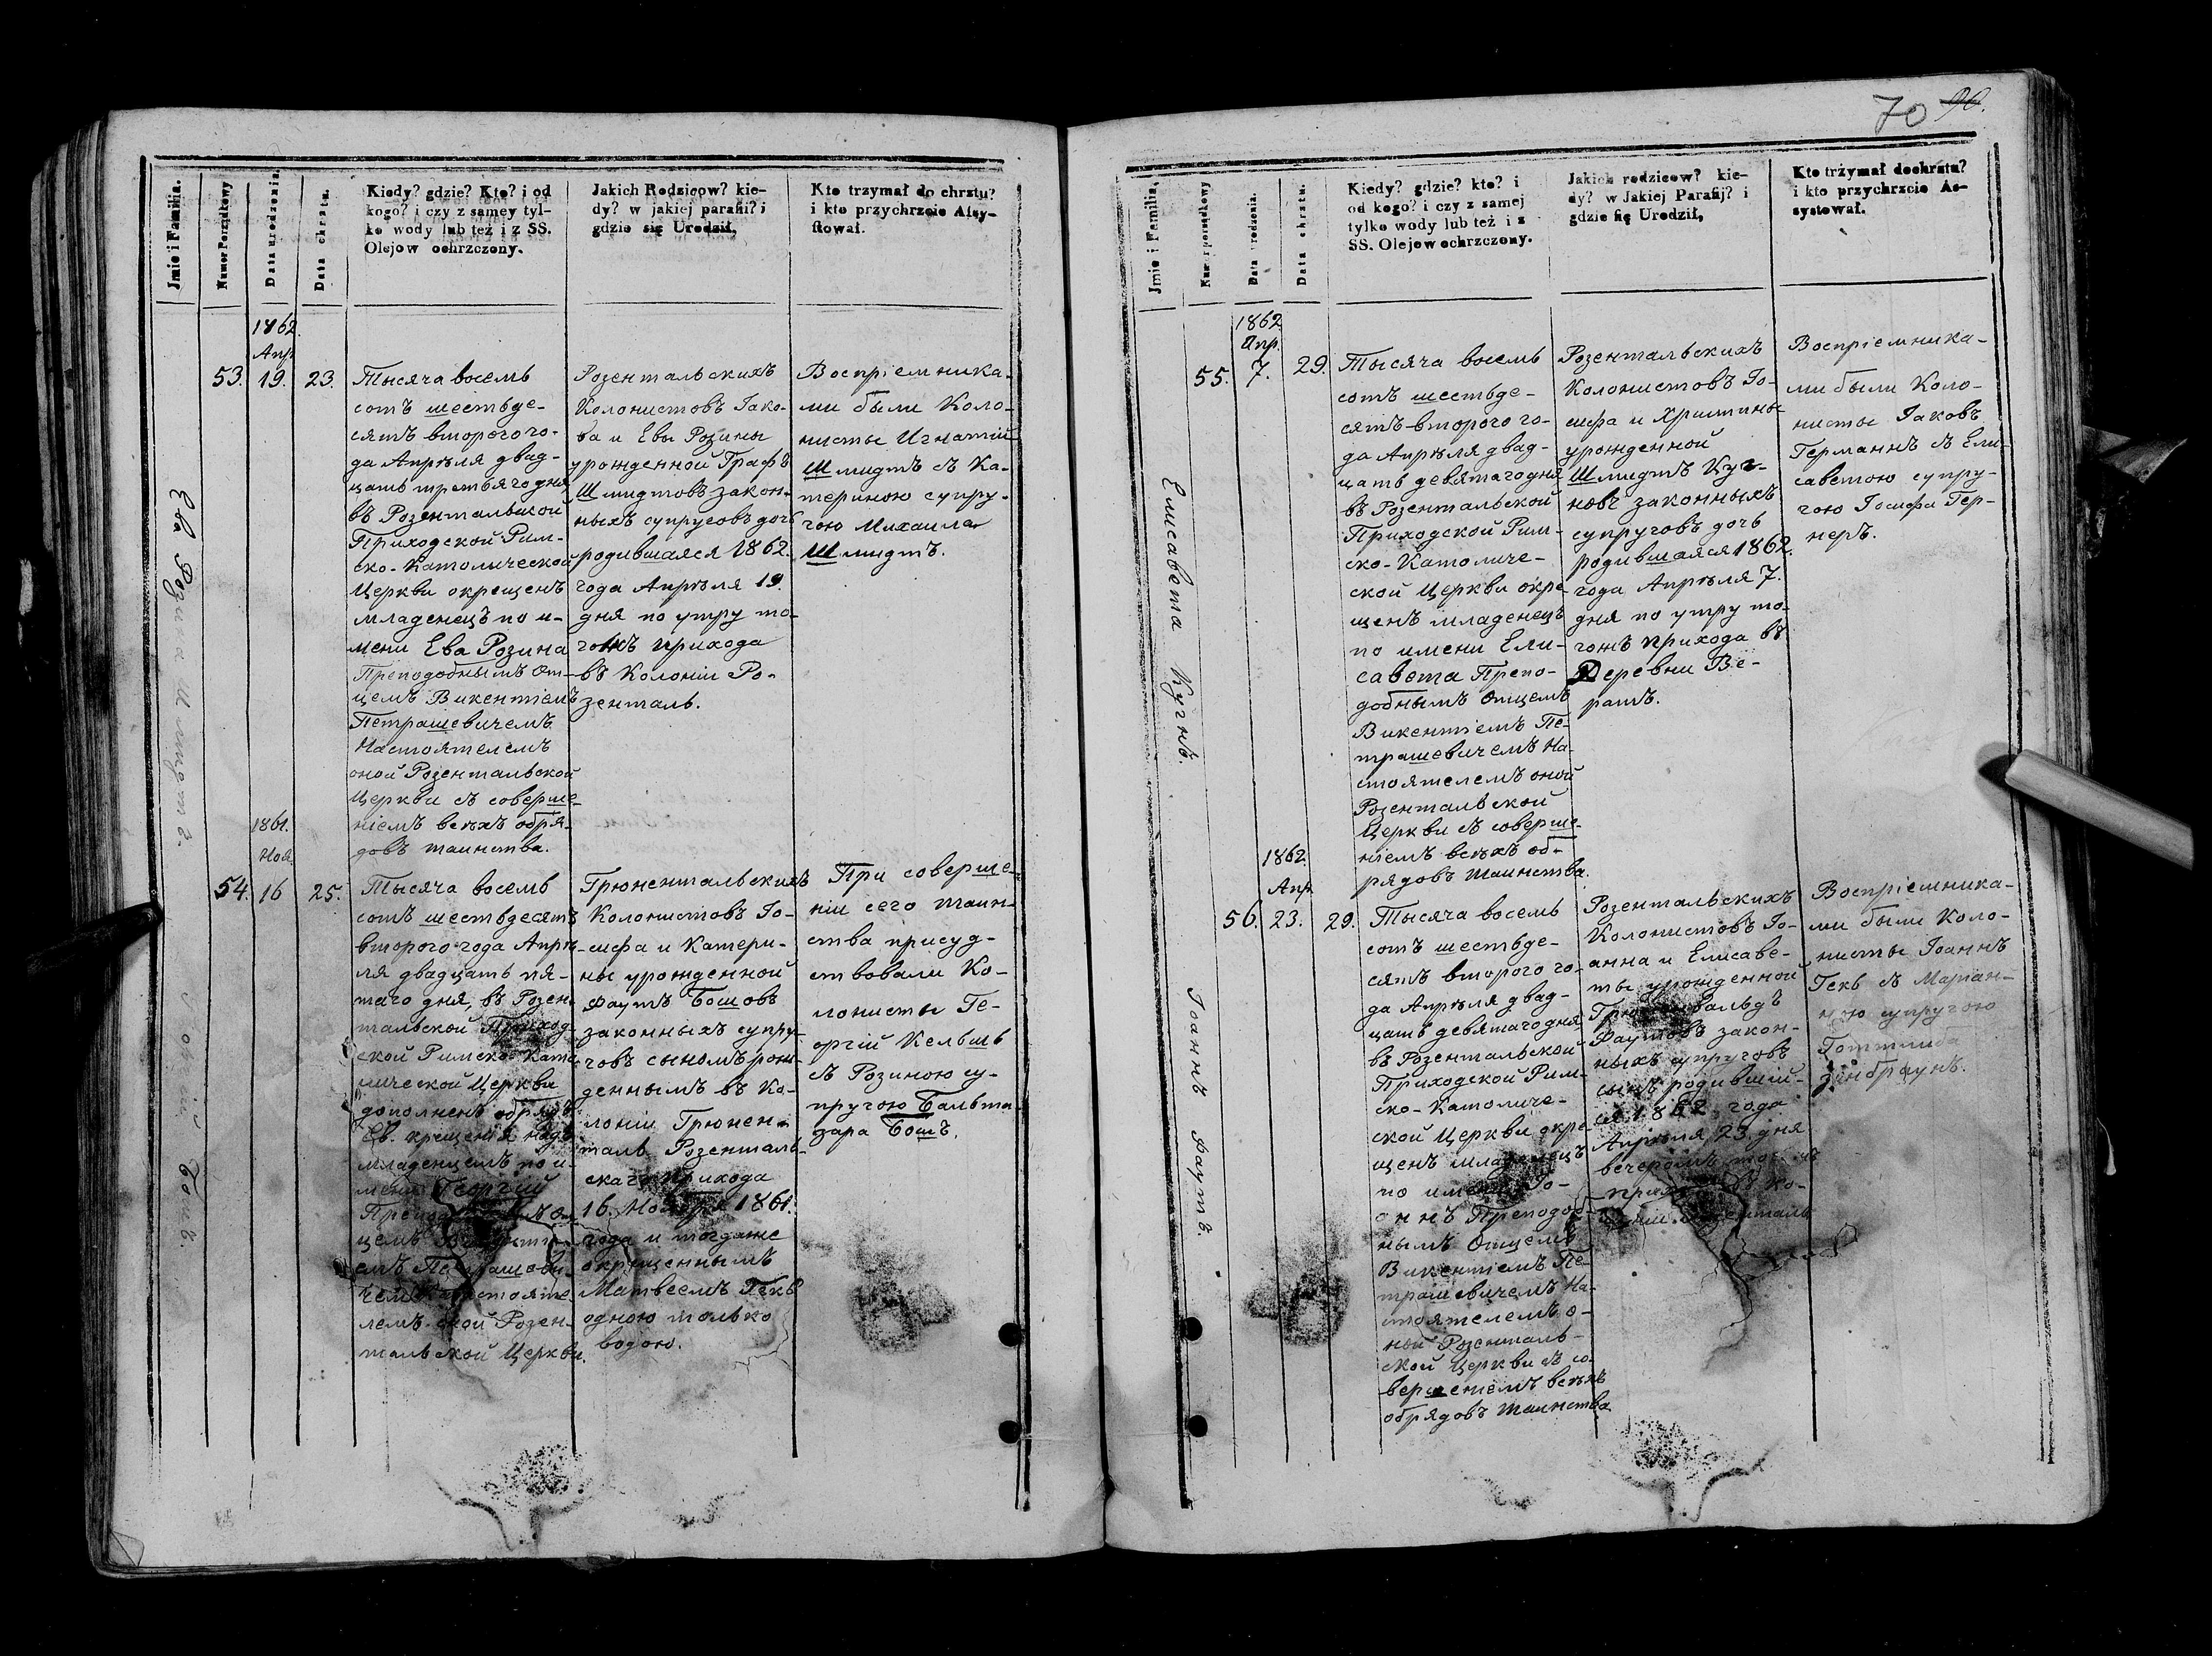 70 90.
Jmie i Familia.
Numer Porządkowy
Data urodzenia.
Data chrztu.
Kiedy? gdzie? Kto? i od
kogo? i czy z samey tyl-
ko wody lub też i z SS.
Olejow ochrzczony.
Jakich Rodzicow? kie-
dy? w jakiej parafii? i
gdzie się Urodził,
Kto trzymał do chrztu?
i kto przychrzcie Assy-
stował.
Ева Розина Шмидтъ.
1862
Апр.
53. 19. 23.
Тысяча восемь
сотъ шестьде-
сятъ второго го-
да Апрѣля двад-
цать третьяго дня
въ Розентальской
Приходской Рим-
ско-Католической
Церкви окрещенъ
младенецъ по и-
мени Ева Розина
Преподобнымъ От-
цемъ Викентіемъ
Петрашевичемъ
Настоятелемъ
оной Розентальской
Церкви съ соверше-
ніемъ всѣхъ обря-
довъ таинства.
Розентальскихъ
Колонистовъ Іако-
ва и Евы Розины
урожденной Графъ
Шмидтовъ закон-
ныхъ супруговъ дочь
родившаяся 1862.
года Апрѣля 19.
дня по утру то-
гожъ прихода
въ Колоніи Ро-
зенталь.
Воспріемника-
ми были Коло-
нисты Игнатій
Шмидтъ съ Ка-
териною супру-
гою Михаила
Шмидтъ.
Бошъ.
1861.
Ноя.
54. 16 25.
Тысяча восемь
сотъ шестьдесятъ
второго года Апрѣ-
ля двадцать пя-
таго дня, въ Розен-
тальской Приход-
ской Римско-Като-
лической Церкви
дополненъ обрядъ
Св. крещенія надъ
младенцемъ по и-
мени Георгій
цемъ
лемъ оной Розен-
тальской Церкви.
Грюнентальскихъ
Колонистовъ Іо-
сифа и Катери-
ны урожденной
Фаутъ Бошовъ
законныхъ супру-
говъ сыномъ рож-
деннымъ въ Ко-
лоніи Грюнен-
таль Розенталь-
скаго прихода
16. Ноября 1861.
года и тогдаже
окрещеннымъ
Матвеемъ Гекъ
одною только
водою.
При соверше-
ніи сего таин-
ства присуд-
ствовали Ко-
лонисты Ге-
оргій Кельшъ
съ Розиною су-
пругою Бальта-
зара Бошъ.
Jmie i Familia,
Numer porządkowy
Data urodzenia.
Data chrztu.
Kiedy? gdzie? kto? i
od kogo? i czy z samej
tylko wody lub też i z
SS. Olejow ochrzczony.
Jakich rodzicow? kie-
dy? w Jakiej Parafij? i
gdzie się Urodził,
Kto trzymał dochrztu?
i kto przychrzcie As-
systował.
Елисавета Кугнъ.
1862
Апр.
55. 7. 29.
Тысяча восемь
сотъ шестьде-
сятъ второго го-
да Апрѣля двад-
цать девятаго дня
въ Розентальской
Приходской Рим-
ско-Католиче-
ской Церкви окре-
щенъ младенецъ
по имени Ели-
савета Препо-
добнымъ Отцемъ
Викентіемъ Пе-
трашевичемъ На-
стоятелемъ оной
Розентальской
Церкви съ соверше-
ніемъ всѣхъ об-
рядовъ таинства.
Розентальскихъ
Колонистовъ Іо-
сифа и Христины
урожденной
Шмидтъ Куг-
новъ законныхъ
супруговъ дочь
родившаяся 1862.
года Апрѣля 7.
дня по утру то-
гожъ прихода въ
Деревни Бе-
ратъ.
Воспріемника-
ми были Коло-
нисты Іаковъ
Германнъ съ Ели-
саветою супру-
гою Іосифа Гер-
неръ.
Іоаннъ Фаутъ.
1862.
Апр.
56. 23. 29.
Тысяча восемь
сотъ шестьде-
сятъ второго го-
да Апрѣля двад-
цать девятаго дня
въ Розентальской
Приходской Рим-
ско-Католиче-
ской Церкви окре-
щенъ младенецъ
по имени Іо-
аннъ Преподоб-
нымъ Отцемъ
Викентіемъ Пе-
трашевичемъ На-
стоятелемъ о-
ной Розенталь-
ской Церкви съ со-
вершеніемъ всѣхъ
обрядовъ таинства
Розентальскихъ
Колонистовъ Іо-
анна и Елисаве-
ты урожденной
Фаутовъ закон-
ныхъ супруговъ
сынъ родившій-
ся 1862 года
Апрѣля 23. дня
вечеромъ
Воспріемника-
ми были Коло-
нисты Іоаннъ
Гекъ съ Маріан-
ною супругою
Готтлиба
Зинбраунъ.